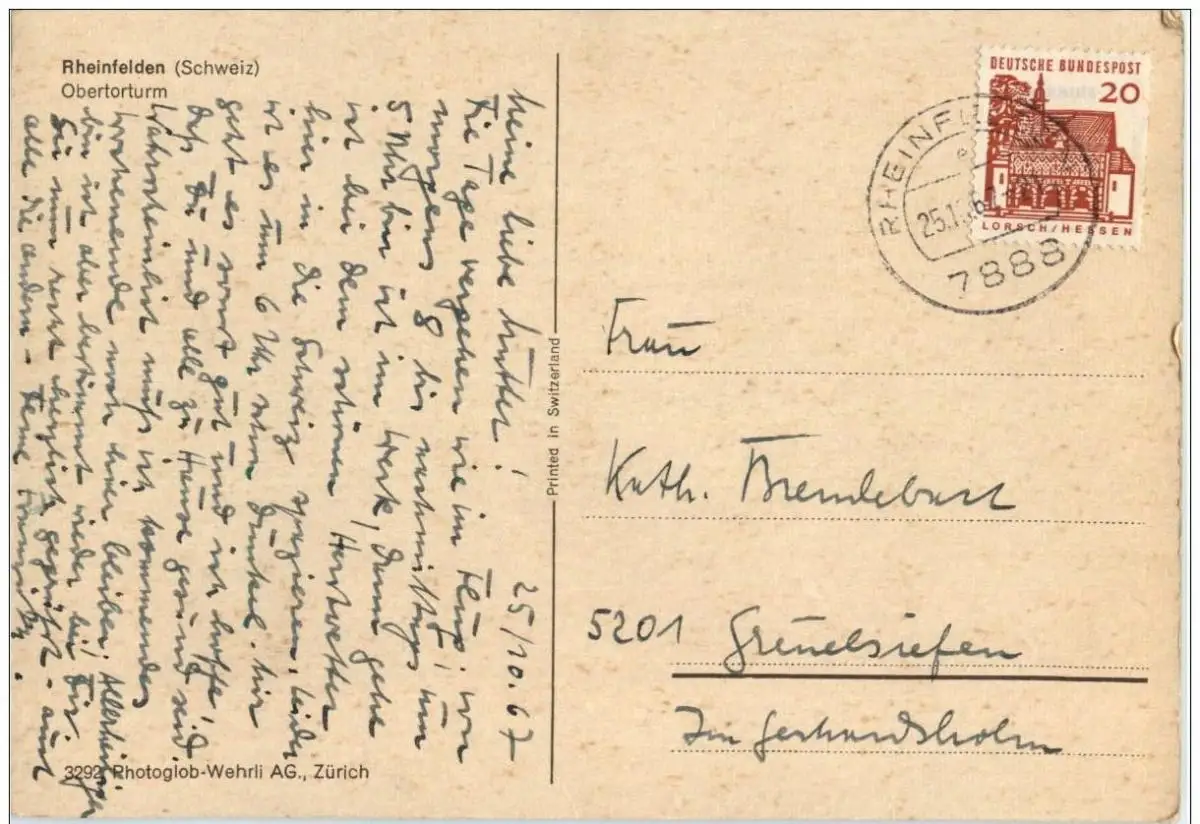 Rheinfelden (Schweiz)
Obertorturm
25/10.67
Meine liebe Mutter!
Die Tage vergehen wie im Flug; von
morgens 8 bis nachmittags um
5 Uhr bin ich im Werk, dann gehe
ich bei dem schönen Herbstwetter
hier in die Schweiz spazieren. Leider
ist es um 6 Uhr schon dunkel. Mir
geht es sonst gut und ich hoffe,
daß Du und alle zu Hause gesund sind.
Wahrscheinlich muß ich kommendes
Wochenende noch hier bleiben; Allerheiligen
bin ich aber bestimmt wieder bei Dir.
Sei nun recht herzlich gegrüßt - auch
alle die andern - Deine
3292 Photoglob-Wehrli AG., Zürich
Printed in Switzerland
DEUTSCHE BUNDESPOST
20
LORSCH/HESSEN
7888
Frau
Kath.
5201 Greuelsiefen
Im Gerhardsholm